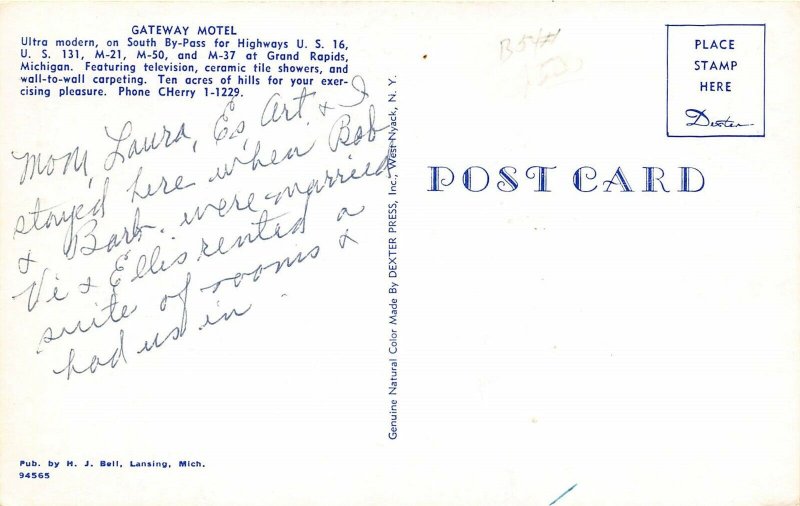 GATEWAY MOTEL
Ultra modern, on South By-Pass for Highways U. S. 16,
U. S. 131, M-21, M-50, and M-37 at Grand Rapids,
Michigan. Featuring television, ceramic tile showers, and
wall-to-wall carpeting. Ten acres of hills for your exer-
cising pleasure. Phone CHerry 1-1229.
Mom, Laura, Es, Art & I
stayed here when Bob
& Barb. were married
Vi & Ellis rented a
suite of rooms &
had us in.
Pub. by H. J. Bell, Lansing, Mich.
94565
Genuine Natural Color Made By DEXTER PRESS, Inc., West Nyack, N. Y.
B54
POST CARD
PLACE
STAMP
HERE
Dexter